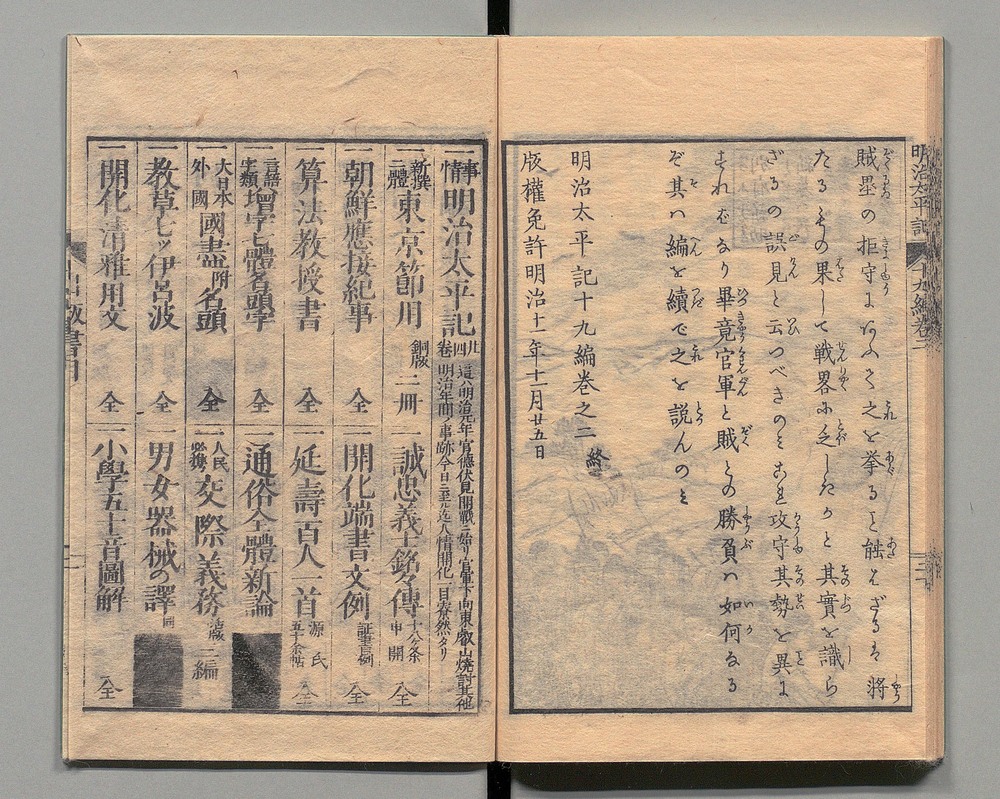 明治太平記
十九編卷二
賊壘の拒守により久く之を擧ると能はざるは將
たるもの果して戦畧に乏しきかと其實を識ら
ざるの誤見と云つべきのミこは攻守其勢を異に
すればなり畢竟官軍と賊との勝負ハ如何なる
ぞ其ハ編を續で之を説んのミ
明治太平記十九編卷之二 終
版權免許明治十一年十二月廿五日
一 事情 明治太平記 廿四卷
這ハ明治元年官德伏見開戰ニ始リ官軍下向東叡山焼討其他
明治年間ノ事跡今日ニ至迄人情開化一目寮然タリ
一 新撰二體 東京節用 銅版 二冊
一 誠忠義士銘々傳 十八ケ条申開 全
一 朝鮮應接紀事 全
一 開化端書文例 証書目例 全
一 算法教授書 全
一 延壽百人一首 源氏五十余帖 全
一 言語字類 增字七體名頭字 全
一 通俗全體新論
一 大日本外國 國盡 附 名頭 全
一 人民必携 交際義務 活版 二編
一 教草七ッ伊呂波 全
一 男女器械の譯 同
一 開化清雅用文 全
一 小學五十音圖解 全